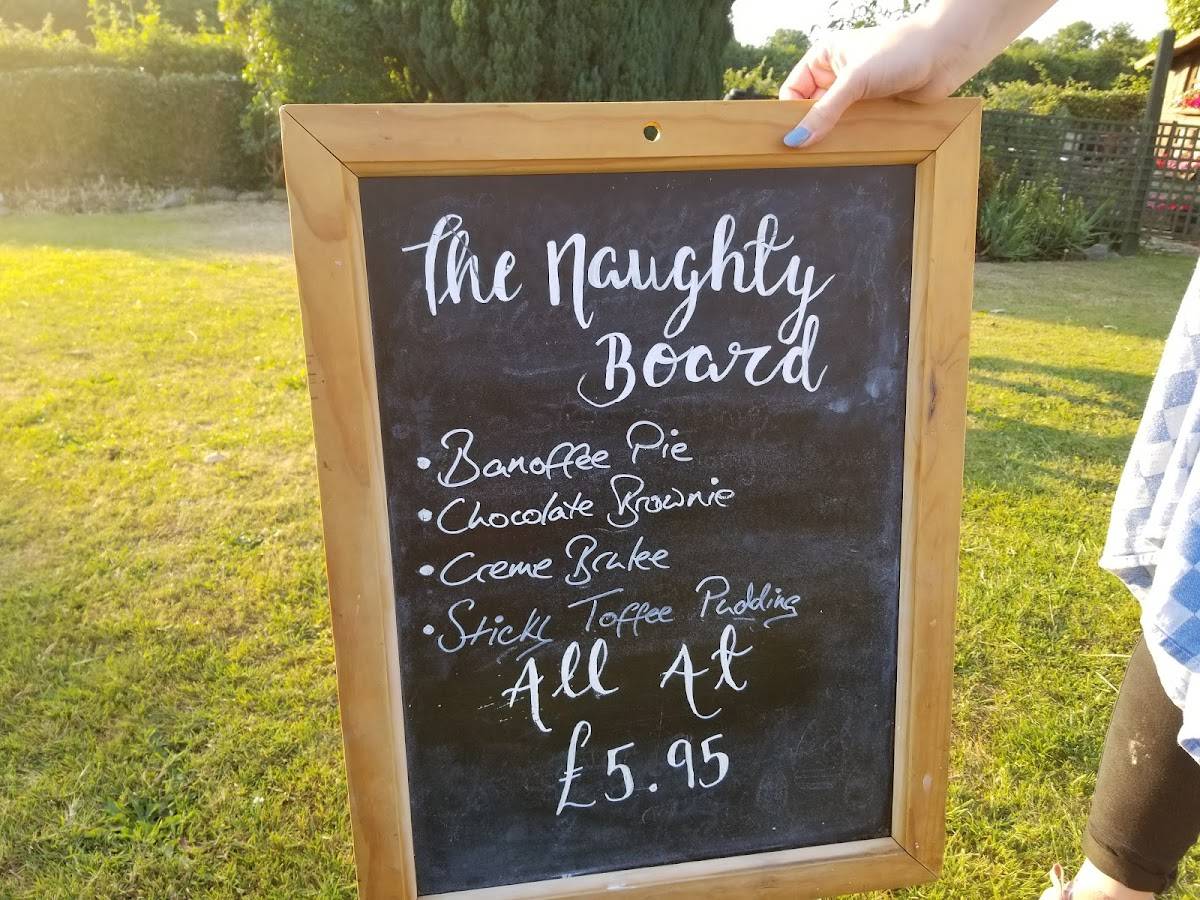 The Naughty
Board
• Banoffee Pie
• Chocolate Brownie
• Creme Brulee
• Sticky Toffee Pudding
All At
£5.95